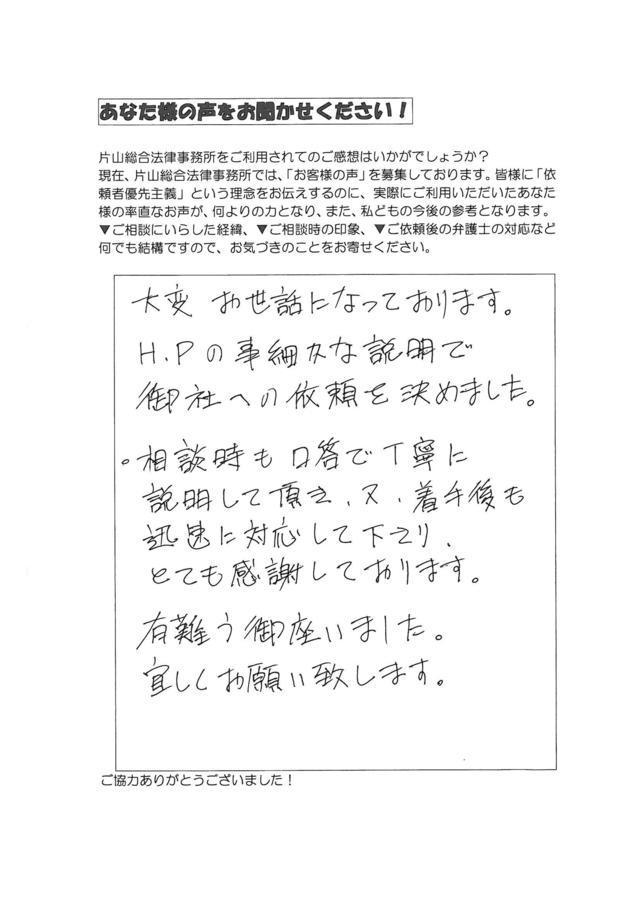 あなた様の声をお聞かせください！
片山総合法律事務所をご利用されてのご感想はいかがでしょうか？
現在、片山総合法律事務所では、「お客様の声」を募集しております。皆様に「依
頼者優先主義」という理念をお伝えするのに、実際にご利用いただいたあなた
様の率直なお声が、何よりの力となり、また、私どもの今後の参考となります。
▼ご相談にいらした経緯、▼ご相談時の印象、▼ご依頼後の弁護士の対応など
何でも結構ですので、お気づきのことをお寄せください。
大変 お世話になっております。
H.Pの事細かな説明で
御社への依頼を決めました。
。相談時も口答で丁寧に
説明して頂き、又、着手後も
迅速に対応して下さり、
とても感謝しております。
有難う御座いました。
宜しくお願い致します。
ご協力ありがとうございました！